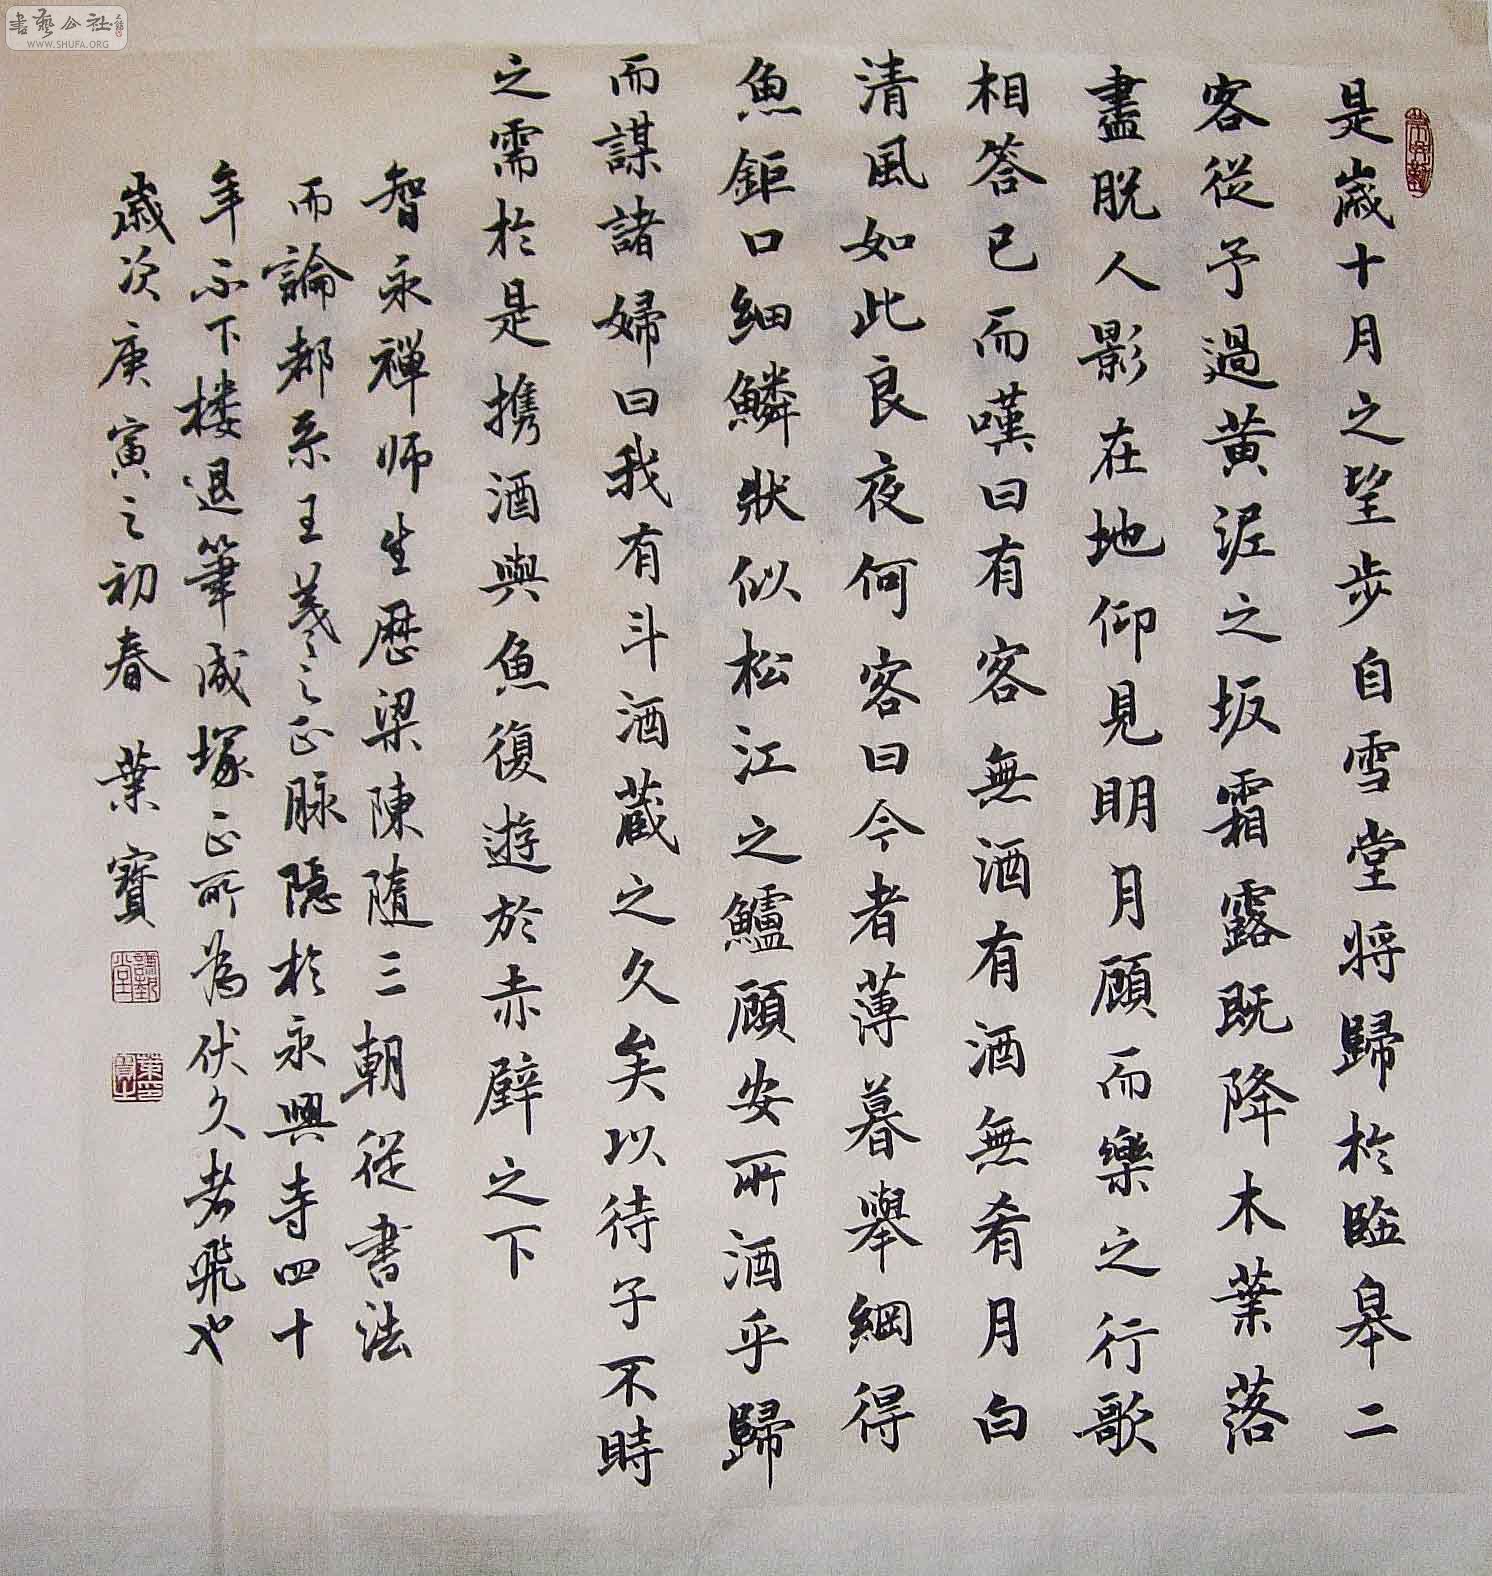 是歲十月之望步自雪堂将歸於臨皋二
客從予過黄泥之坂霜露既降木葉落
盡脱人影在地仰見明月顧而樂之行歌
相答已而嘆曰有客無酒有酒無肴月白
清風如此良夜何客曰今者薄暮舉網得
魚鉅口細鱗狀似松江之鱸顧安所酒乎歸
而謀諸婦曰我有斗酒蔵之久矣以待子不時
之需於是携酒與魚復遊於赤壁之下
智永禅师生歷梁陳隨三朝從書法
而論都系王羲之正脉隱於永興寺四十
年不下楼退筆成塚正所為伏久者飛也
歲次庚寅之初春 葉寶
書藝公社
WWW.SHUFA.ORG